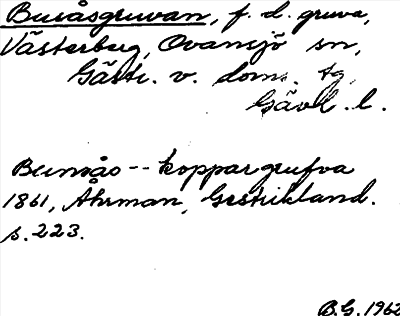 Busåsgruvan, f. d. gruva,
Västerberg, Ovansjö sn,
Gästr. v. doms. tg,
Gävl. l.
Bunsås -- koppargrufva
1861, Ahrman, Gestrikland.
s. 223.
B.G. 1962